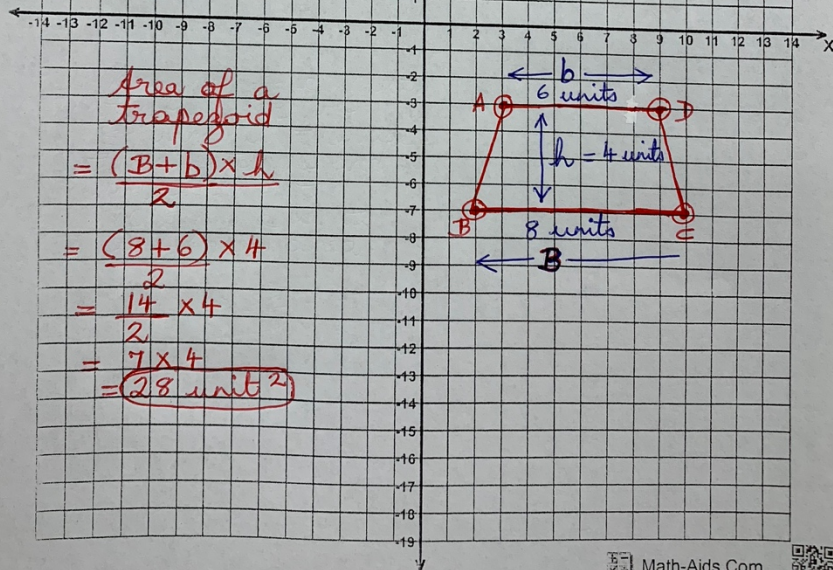 -14 -13 -12 -11 -10 -9 -8 -7 -6 -5 -4 -3 -2 -1 1 2 3 4 5 6 7 8 9 10 11 12 13 14 x
-1
-2
-3
-4
-5
-6
-7
-8
-9
-10
-11
-12
-13
-14
-15
-16
-17
-18
-19
y
Area of a
trapezoid
= (B+b) × h
2
= (8+6) × 4
2
= 14 × 4
2
= 7 × 4
= 28 unit²
b
6 units
A D
h = 4 units
B C
8 units
B
Math-Aids.Com